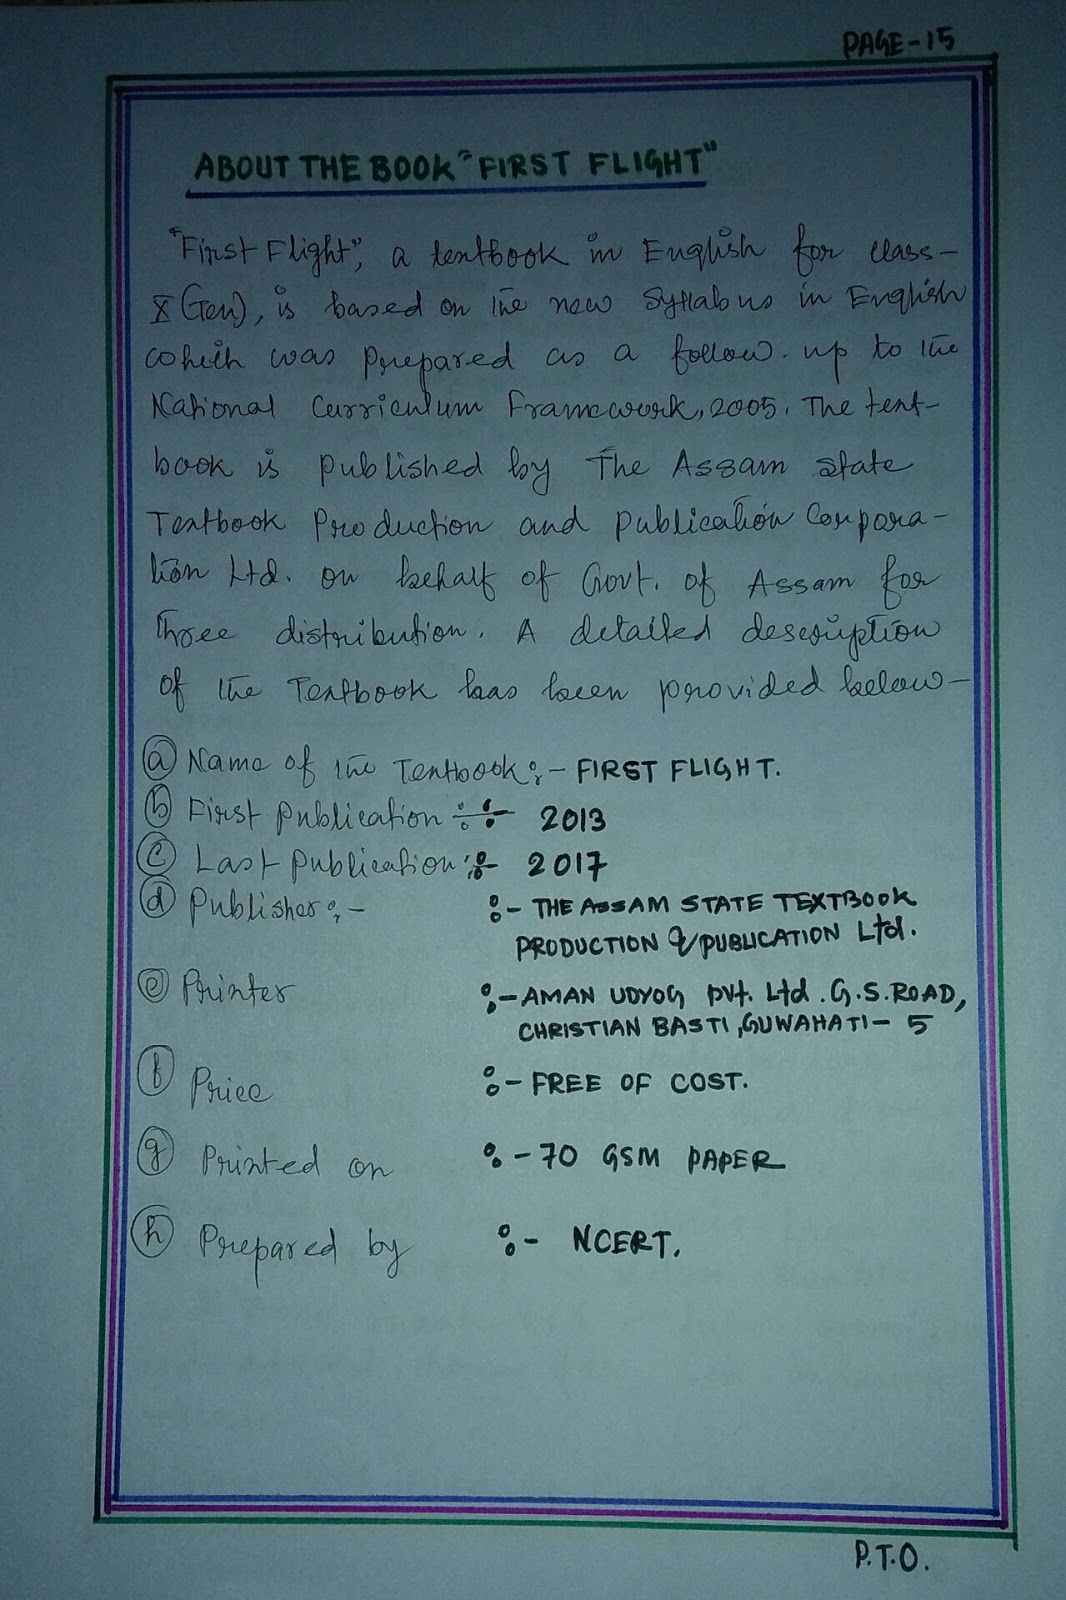 PAGE-15
ABOUT THE BOOK "FIRST FLIGHT"
"First Flight", a textbook in English for class-
X (Gen), is based on the new Syllabus in English
which was prepared as a follow-up to the
National Curriculum Framework, 2005. The text-
book is published by The Assam state
Textbook Production and Publication Corpora-
tion Ltd. on behalf of Govt. of Assam for
three distribution. A detailed description
of the Textbook has been provided below-
(a) Name of the Textbook:- FIRST FLIGHT.
(b) First Publication :- 2013
(c) Last Publication :- 2017
(d) Publisher :- :- THE ASSAM STATE TEXTBOOK
PRODUCTION & PUBLICATION Ltd.
(e) Printer :- AMAN UDYOG Pvt. Ltd. G.S. ROAD,
CHRISTIAN BASTI, GUWAHATI- 5
(f) Price :- FREE OF COST.
(g) Printed on :- 70 GSM PAPER
(h) Prepared by :- NCERT.
P.T.O.